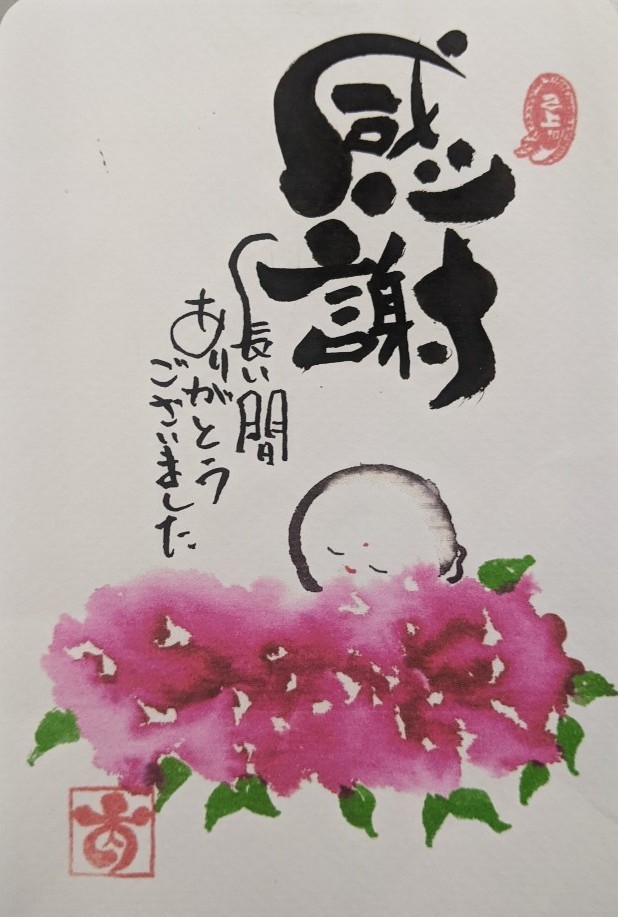 感謝
長い間
ありがとう
ございました